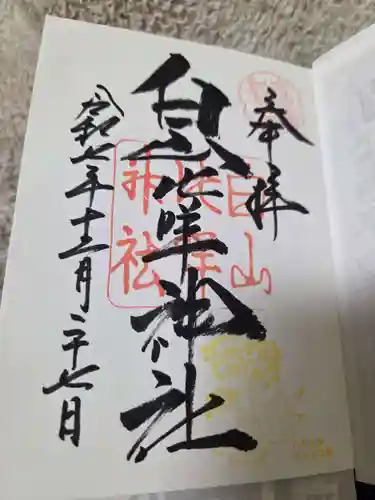 奉拝
白山比咩神社
令和七年十二月二十七日
白山
比咩
神社